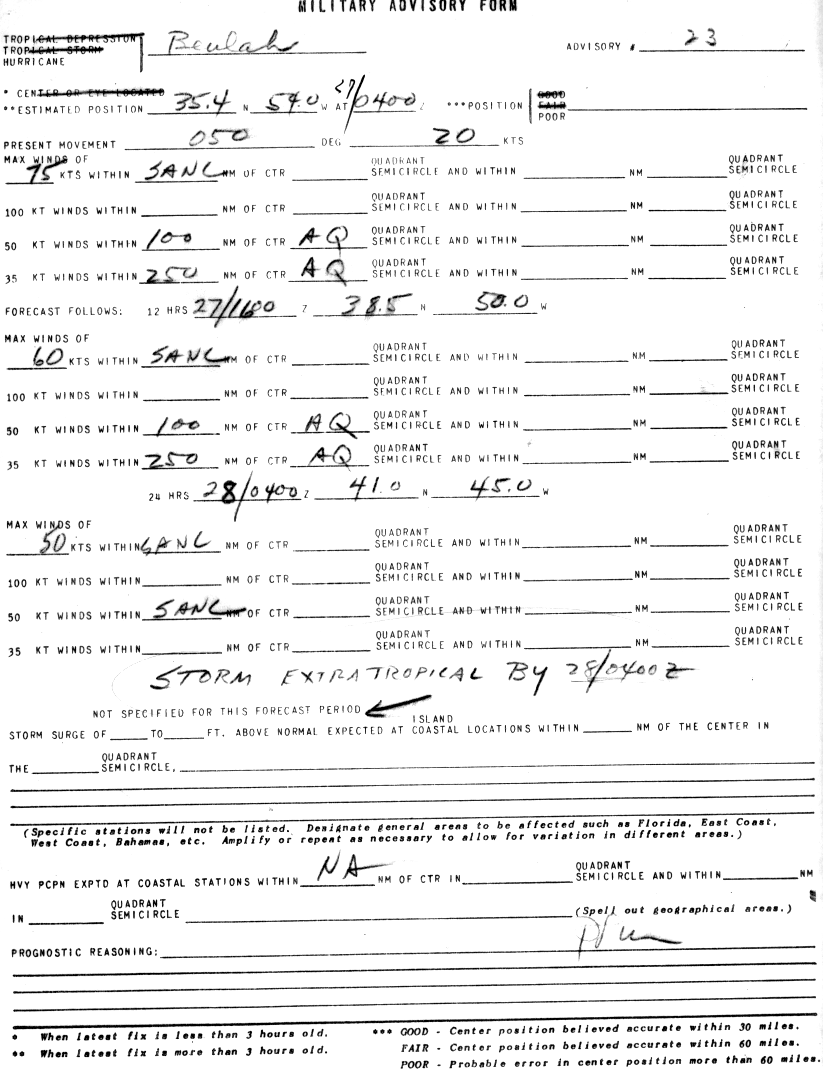 MILITARY ADVISORY FORM
TROPICAL DEPRESSION
TROPICAL STORM Beulah ADVISORY # 23
HURRICANE
* CENTER OR EYE LOCATED GOOD
**ESTIMATED POSITION 35.4 N 54.0 W AT 27/0400 Z ***POSITION FAIR
POOR
PRESENT MOVEMENT 050 DEG 20 KTS
MAX WINDS OF QUADRANT QUADRANT
75 KTS WITHIN SANL NM OF CTR SEMICIRCLE AND WITHIN NM SEMICIRCLE
QUADRANT QUADRANT
100 KT WINDS WITHIN NM OF CTR SEMICIRCLE AND WITHIN NM SEMICIRCLE
QUADRANT QUADRANT
50 KT WINDS WITHIN 100 NM OF CTR AQ SEMICIRCLE AND WITHIN NM SEMICIRCLE
QUADRANT QUADRANT
35 KT WINDS WITHIN 250 NM OF CTR AQ SEMICIRCLE AND WITHIN NM SEMICIRCLE
FORECAST FOLLOWS: 12 HRS 27/1600 Z 38.5 N 50.0 W
MAX WINDS OF QUADRANT QUADRANT
60 KTS WITHIN SANL NM OF CTR SEMICIRCLE AND WITHIN NM SEMICIRCLE
QUADRANT QUADRANT
100 KT WINDS WITHIN NM OF CTR SEMICIRCLE AND WITHIN NM SEMICIRCLE
QUADRANT QUADRANT
50 KT WINDS WITHIN 100 NM OF CTR AQ SEMICIRCLE AND WITHIN NM SEMICIRCLE
QUADRANT QUADRANT
35 KT WINDS WITHIN 250 NM OF CTR AQ SEMICIRCLE AND WITHIN NM SEMICIRCLE
24 HRS 28/0400 Z 41.0 N 45.0 W
MAX WINDS OF QUADRANT QUADRANT
50 KTS WITHIN SANL NM OF CTR SEMICIRCLE AND WITHIN NM SEMICIRCLE
QUADRANT QUADRANT
100 KT WINDS WITHIN NM OF CTR SEMICIRCLE AND WITHIN NM SEMICIRCLE
QUADRANT QUADRANT
50 KT WINDS WITHIN SANL NM OF CTR SEMICIRCLE AND WITHIN NM SEMICIRCLE
QUADRANT QUADRANT
35 KT WINDS WITHIN NM OF CTR SEMICIRCLE AND WITHIN NM SEMICIRCLE
STORM EXTRATROPICAL BY 28/0400Z
NOT SPECIFIED FOR THIS FORECAST PERIOD
ISLAND
STORM SURGE OF TO FT. ABOVE NORMAL EXPECTED AT COASTAL LOCATIONS WITHIN NM OF THE CENTER IN
QUADRANT
THE SEMICIRCLE,
(Specific stations will not be listed. Designate general areas to be affected such as Florida, East Coast,
West Coast, Bahamas, etc. Amplify or repeat as necessary to allow for variation in different areas.)
QUADRANT
HVY PCPN EXPTD AT COASTAL STATIONS WITHIN NA NM OF CTR IN SEMICIRCLE AND WITHIN NM
QUADRANT
IN SEMICIRCLE (Spell out geographical areas.)
PROGNOSTIC REASONING:
* When latest fix is less than 3 hours old. *** GOOD - Center position believed accurate within 30 miles.
** When latest fix is more than 3 hours old. FAIR - Center position believed accurate within 60 miles.
POOR - Probable error in center position more than 60 miles.